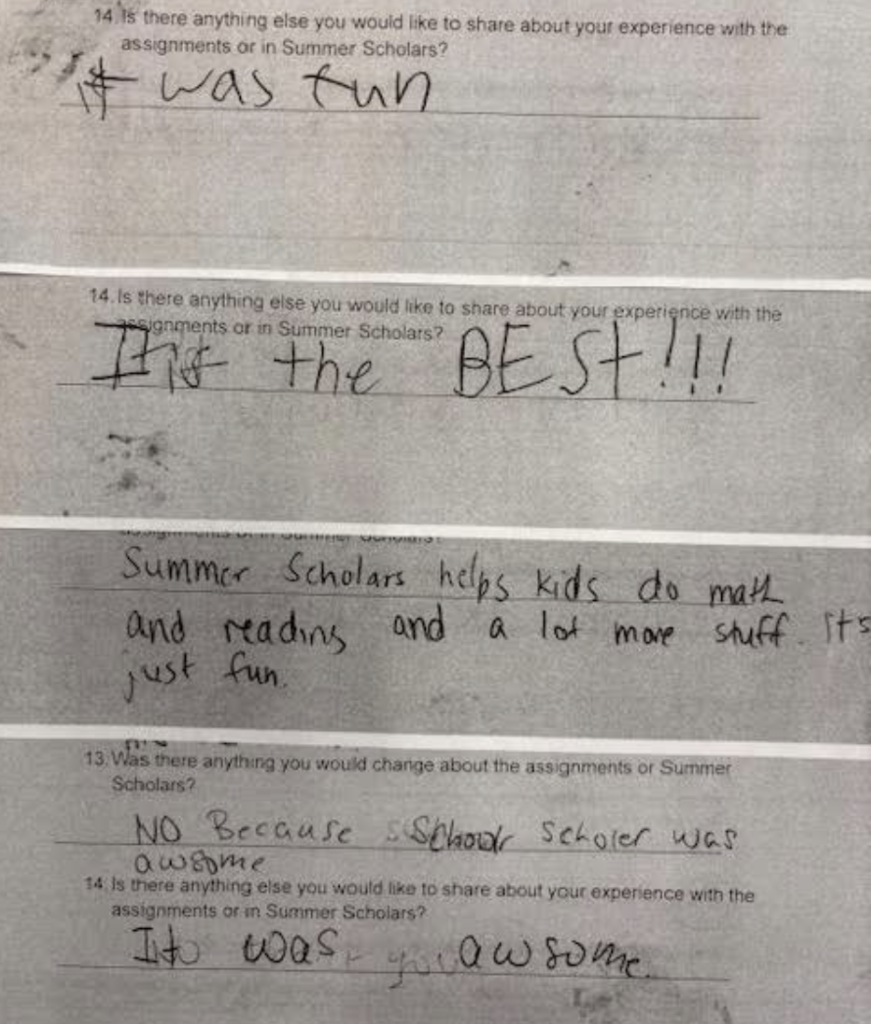 14. Is there anything else you would like to share about your experience with the
assignments or in Summer Scholars?
it was fun
14. Is there anything else you would like to share about your experience with the
assignments or in Summer Scholars?
It is the BEST!!!
assignments or in Summer Scholars?
Summer Scholars helps kids do math
and reading and a lot more stuff. It's
just fun.
13. Was there anything you would change about the assignments or Summer
Scholars?
NO Because scholer was
awsome
14. Is there anything else you would like to share about your experience with the
assignments or in Summer Scholars?
It was awsome.